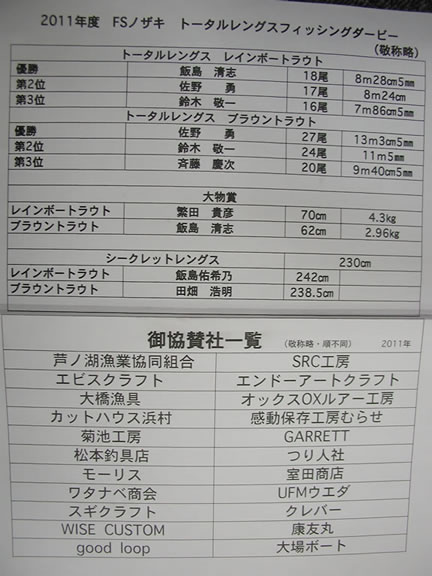 2011年度 FSノザキ トータルレングスフィッシングダービー
(敬称略)
トータルレングス レインボートラウト
優勝 飯島 清志 18尾 8m28cm5mm
第2位 佐野 勇 17尾 8m24cm
第3位 鈴木 敬一 16尾 7m86cm5mm
トータルレングス ブラウントラウト
優勝 佐野 勇 27尾 13m3cm5mm
第2位 鈴木 敬一 24尾 11m5mm
第3位 斉藤 慶次 20尾 9m40cm5mm
大物賞
レインボートラウト 繁田 貴彦 70cm 4.3kg
ブラウントラウト 飯島 清志 62cm 2.96kg
シークレットレングス 230cm
レインボートラウト 飯島佑希乃 242cm
ブラウントラウト 田畑 浩明 238.5cm
御協賛社一覧 (敬称略・順不同) 2011年
芦ノ湖漁業協同組合 SRC工房
エビスクラフト エンドーアートクラフト
大橋漁具 オックスOXルアー工房
カットハウス浜村 感動保存工房むらせ
菊池工房 GARRETT
松本釣具店 つり人社
モーリス 室田商店
ワタナベ商会 UFMウエダ
スギクラフト クレバー
WISE CUSTOM 康友丸
good loop 大場ボート